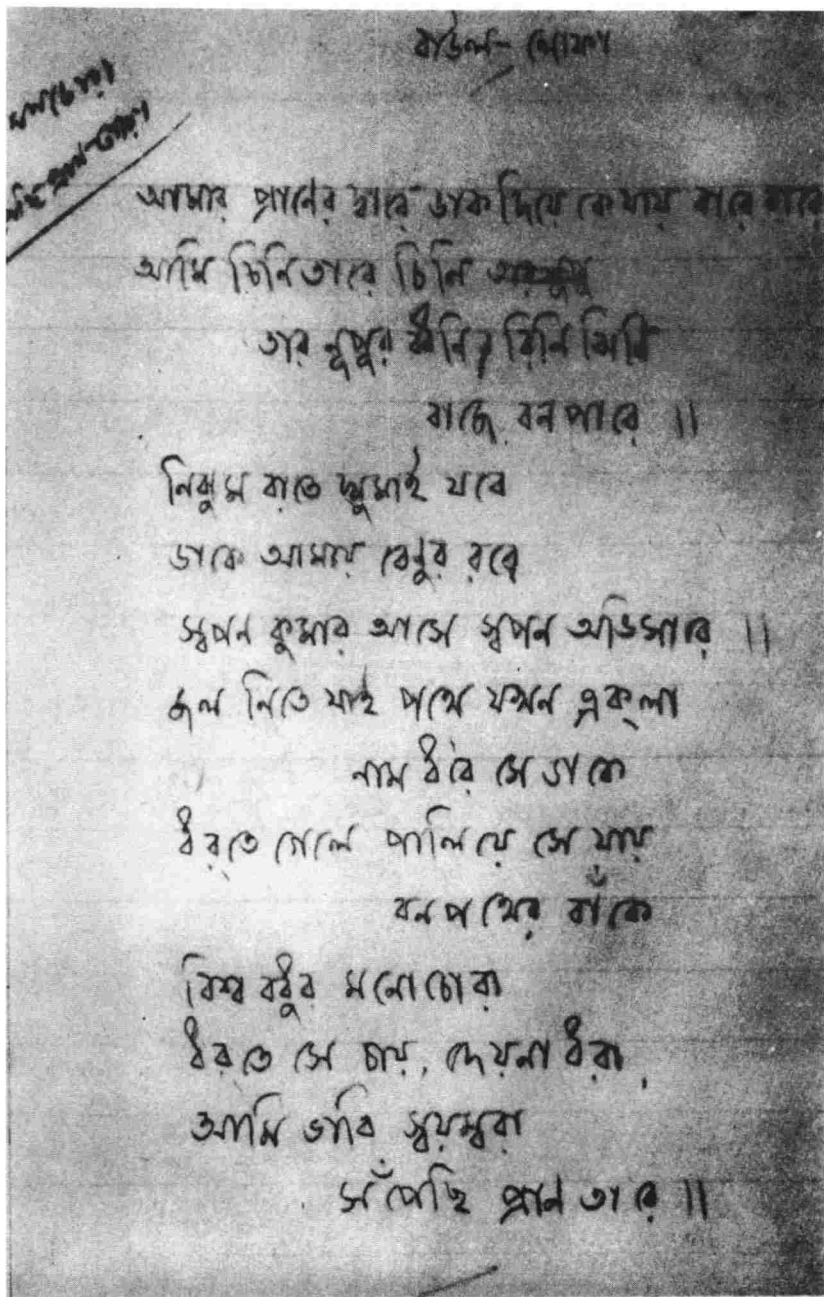 বাউল - লোফা
আমার প্রাণের দ্বারে ডাক দিয়ে কে যায় বারে বারে
আমি চিনি তারে চিনি
তার নূপুর ধ্বনি রিনি ঝিনি
বাজে বন পারে ॥
নিঝুম রাতে ঘুমাই যবে
ডাকে আমায় বেণুর রবে
স্বপন কুমার আসে স্বপন অভিসারে ॥
জল নিতে যাই পথে যখন এক্‌লা
নাম ধরে সে ডাকে
ধরতে গেলে পালিয়ে সে যায়
বন পথের বাঁকে
বিশ্ব বধুর মনোচোরা
ধরতে সে চায়, দেয়না ধরা,
আমি তারি স্বয়ম্বরা
সঁপেছি প্রাণ তারে ॥